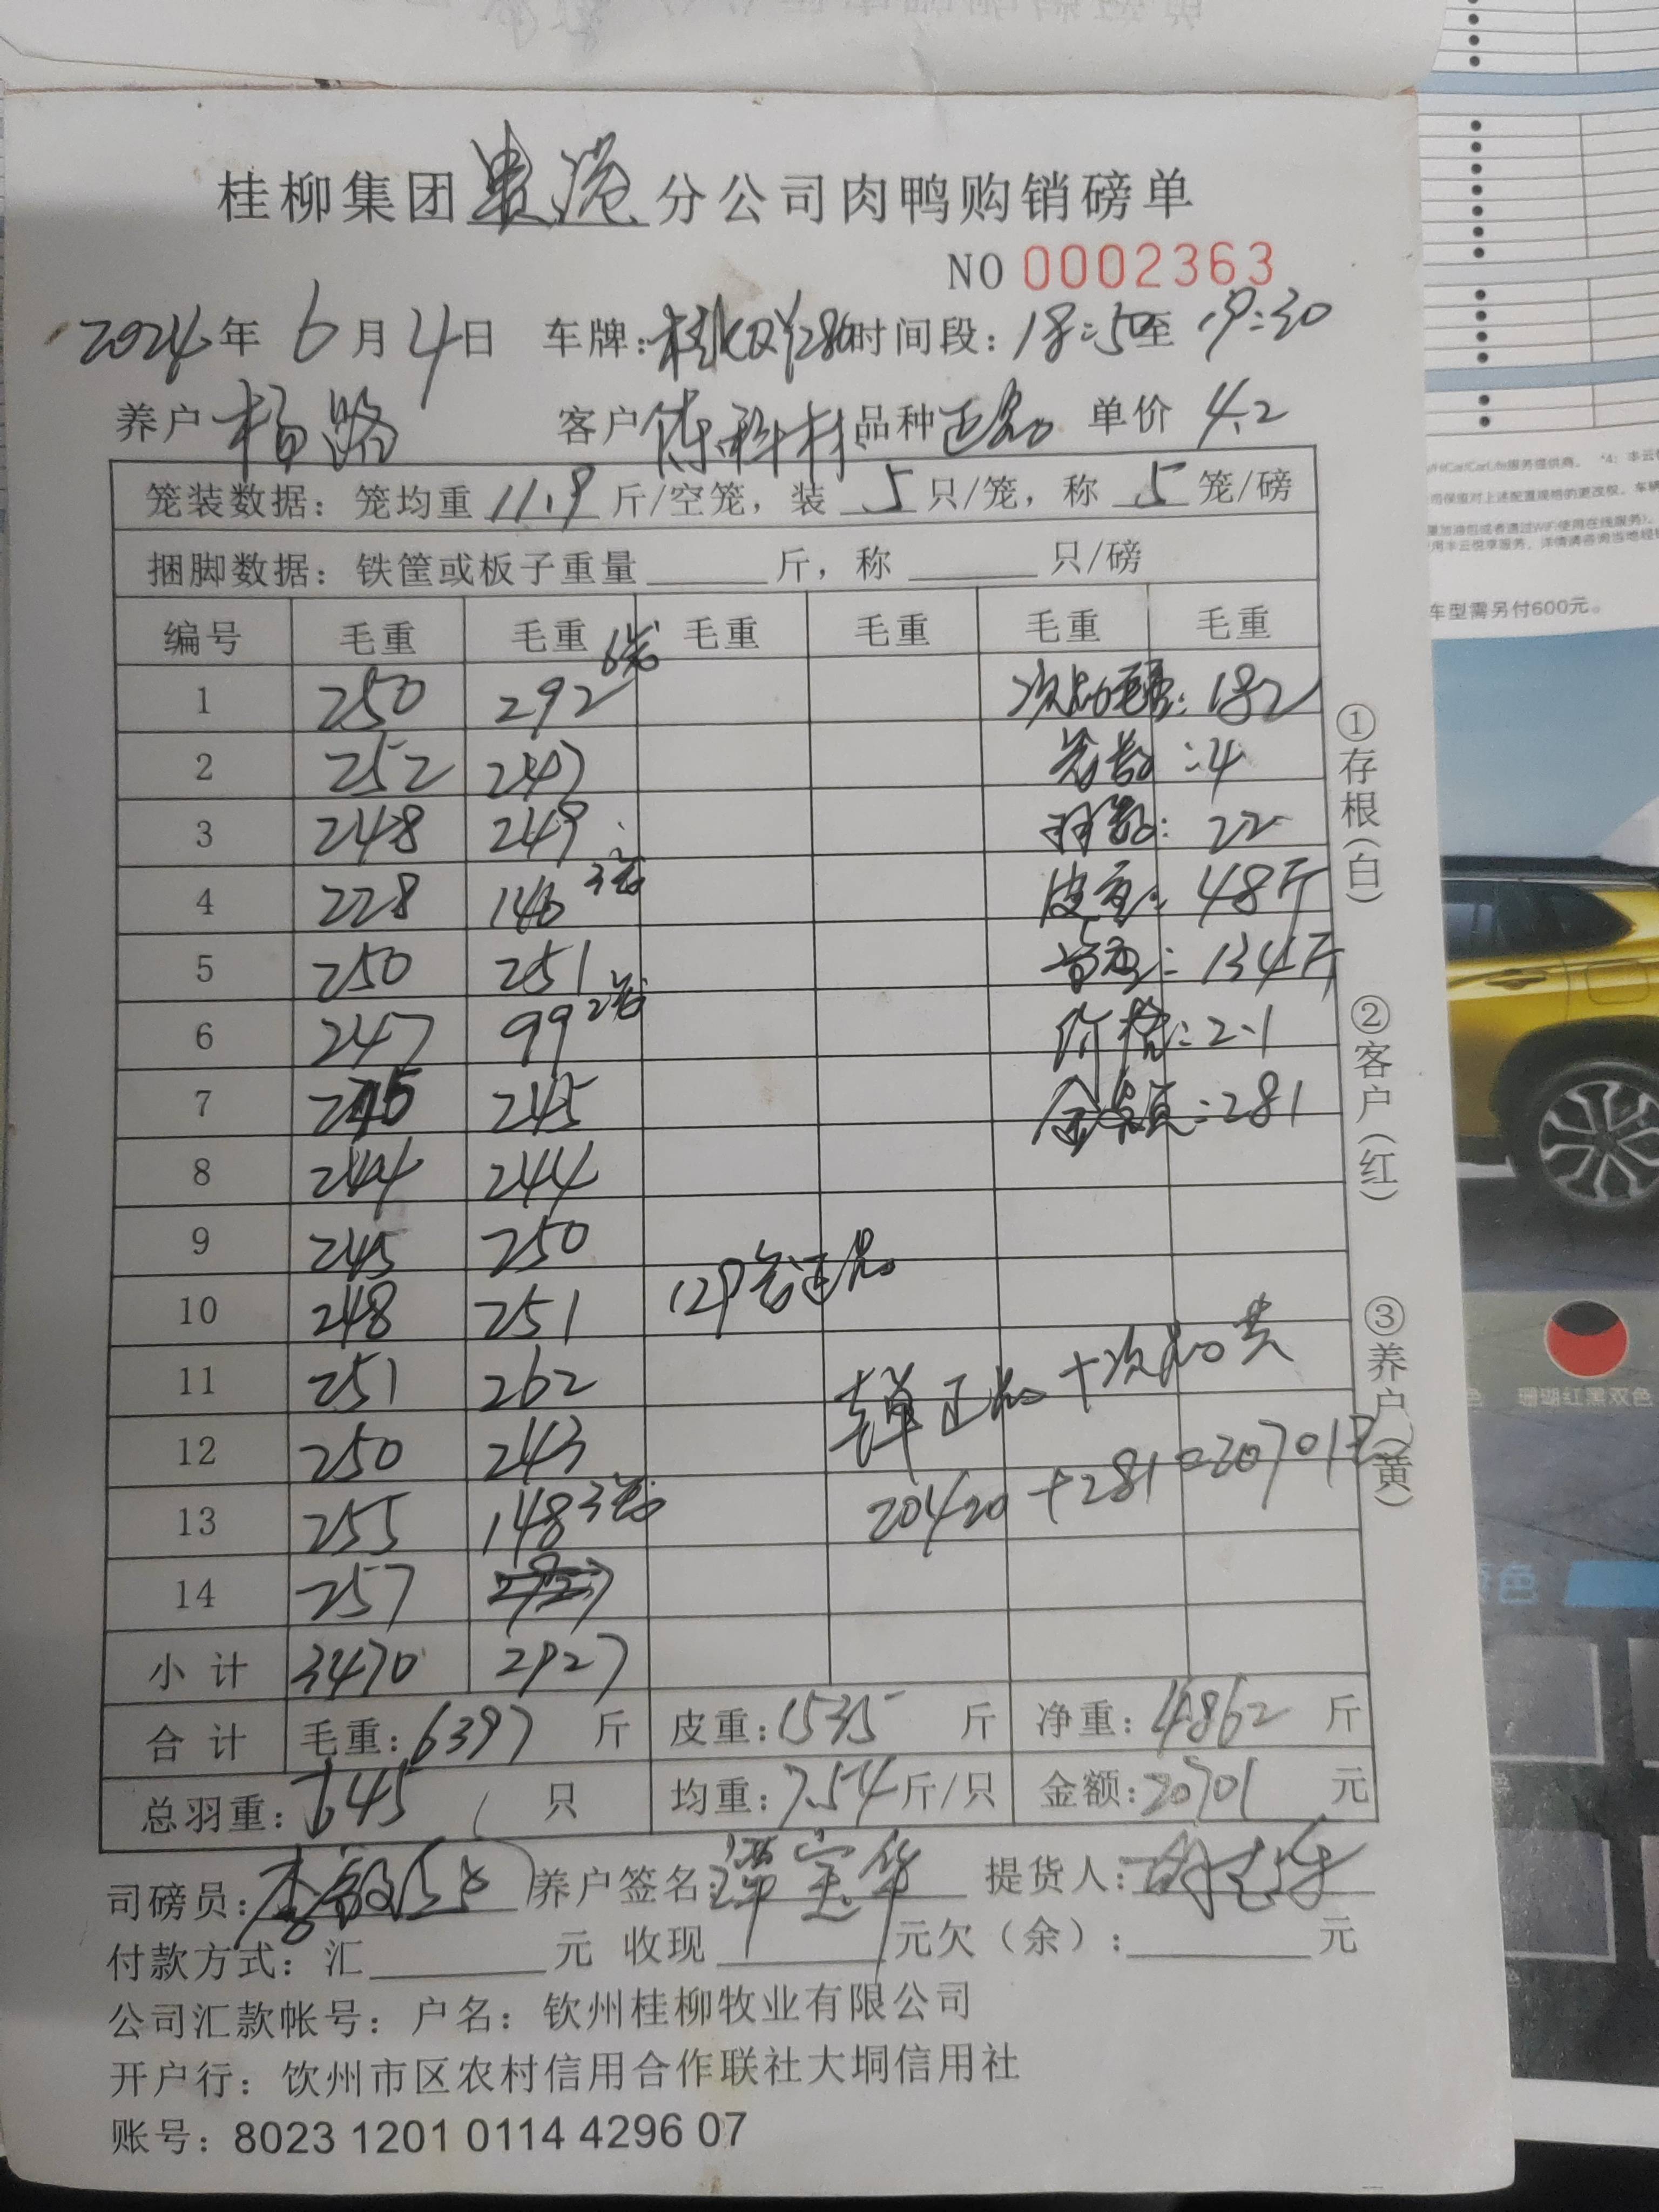 桂柳集团贵港分公司肉鸭购销磅单
NO 0002363
2024年 6月4日 车牌: 时间段: 18:50至 19:30
养户 杨路 客户 陈科材 品种 正品 单价 4.2
笼装数据: 笼均重 11.9 斤/空笼, 装 5 只/笼, 称 5 笼/磅
捆脚数据: 铁筐或板子重量 斤, 称 只/磅
编号 毛重 毛重 毛重 毛重 毛重 毛重
1 250 292 6笼 次品毛重: 182
2 252 247 笼数: 4
3 248 249 羽数: 22
4 228 146 3笼 皮重: 48斤
5 250 251 净重: 134斤
6 247 99 2笼 价格: 2.1
7 245 245 金额: 281
8 244 244
9 245 250
10 248 251 129笼正品
11 251 262
12 250 243 正品+次品共
13 255 148 3笼 20420+281=20701元
14 257
小计 3470 2927
合计 毛重: 6397 斤 皮重: 1535 斤 净重: 4862 斤
总羽重: 645 只 均重: 7.54 斤/只 金额: 20701 元
司磅员: 养户签名: 谭宝华 提货人:
付款方式: 汇 元 收现 元欠(余): 元
公司汇款帐号: 户名: 钦州桂柳牧业有限公司
开户行: 饮州市区农村信用合作联社大垌信用社
账号: 8023 1201 0114 4296 07
①存根(白) ②客户(红) ③养户(黄)
车型需另付600元。
珊瑚红黑双色